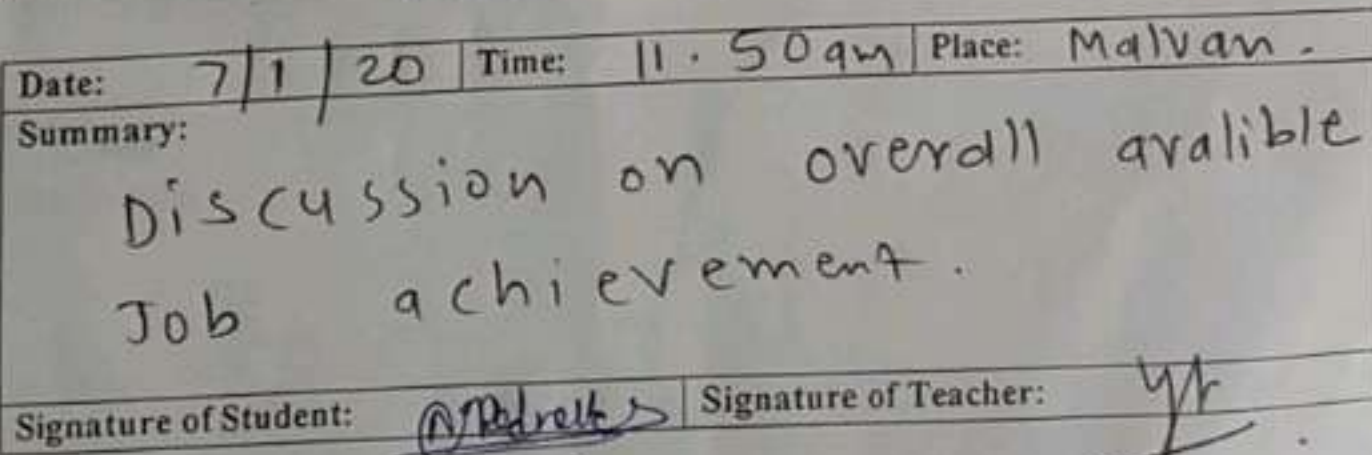 Date: 7/1/20 Time: 11.50am Place: Malvan.
Summary:
Discussion on overall avalible
Job achievement.
Signature of Student: Signature of Teacher: